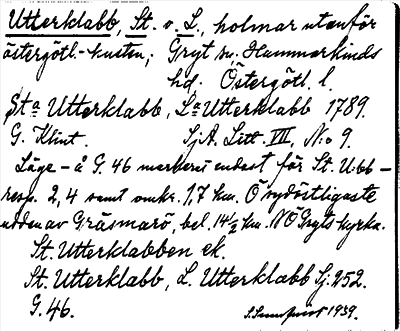 Utterklabb, St. o. L., holmar utanför
östergötl.-kusten; Gryt sn, Hammarkinds
hd. Östergötl. l.
Sta Utterklabb, La Utterklabb 1789.
G. Klint. SjA. Litt. VII, N:o 9.
Läge – å G. 46 markerat endast för St. U-bb –
resp. 2,4 samt omkr. 1,7 km. O sydöstligaste
udden av Gräsmarö, bel. 14½ km. NO Gryts kyrka.
St. Utterklabben ek.
St. Utterklabb, L. Utterklabb Sj. 252.
G. 46. 1939.